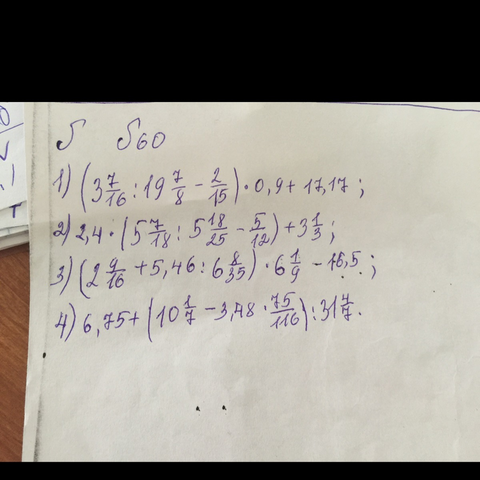 Б Б60
1) (3 7/16 : 19 7/8 - 2/15) · 0,9 + 17,17 ;
2) 2,4 · (5 7/18 : 5 18/25 - 5/12) + 3 1/3 ;
3) (2 9/16 + 5,46 : 6 8/35) · 6 1/9 - 16,5 ;
4) 6,75 + (10 1/7 - 3,48 · 75/116) : 31 4/7 .